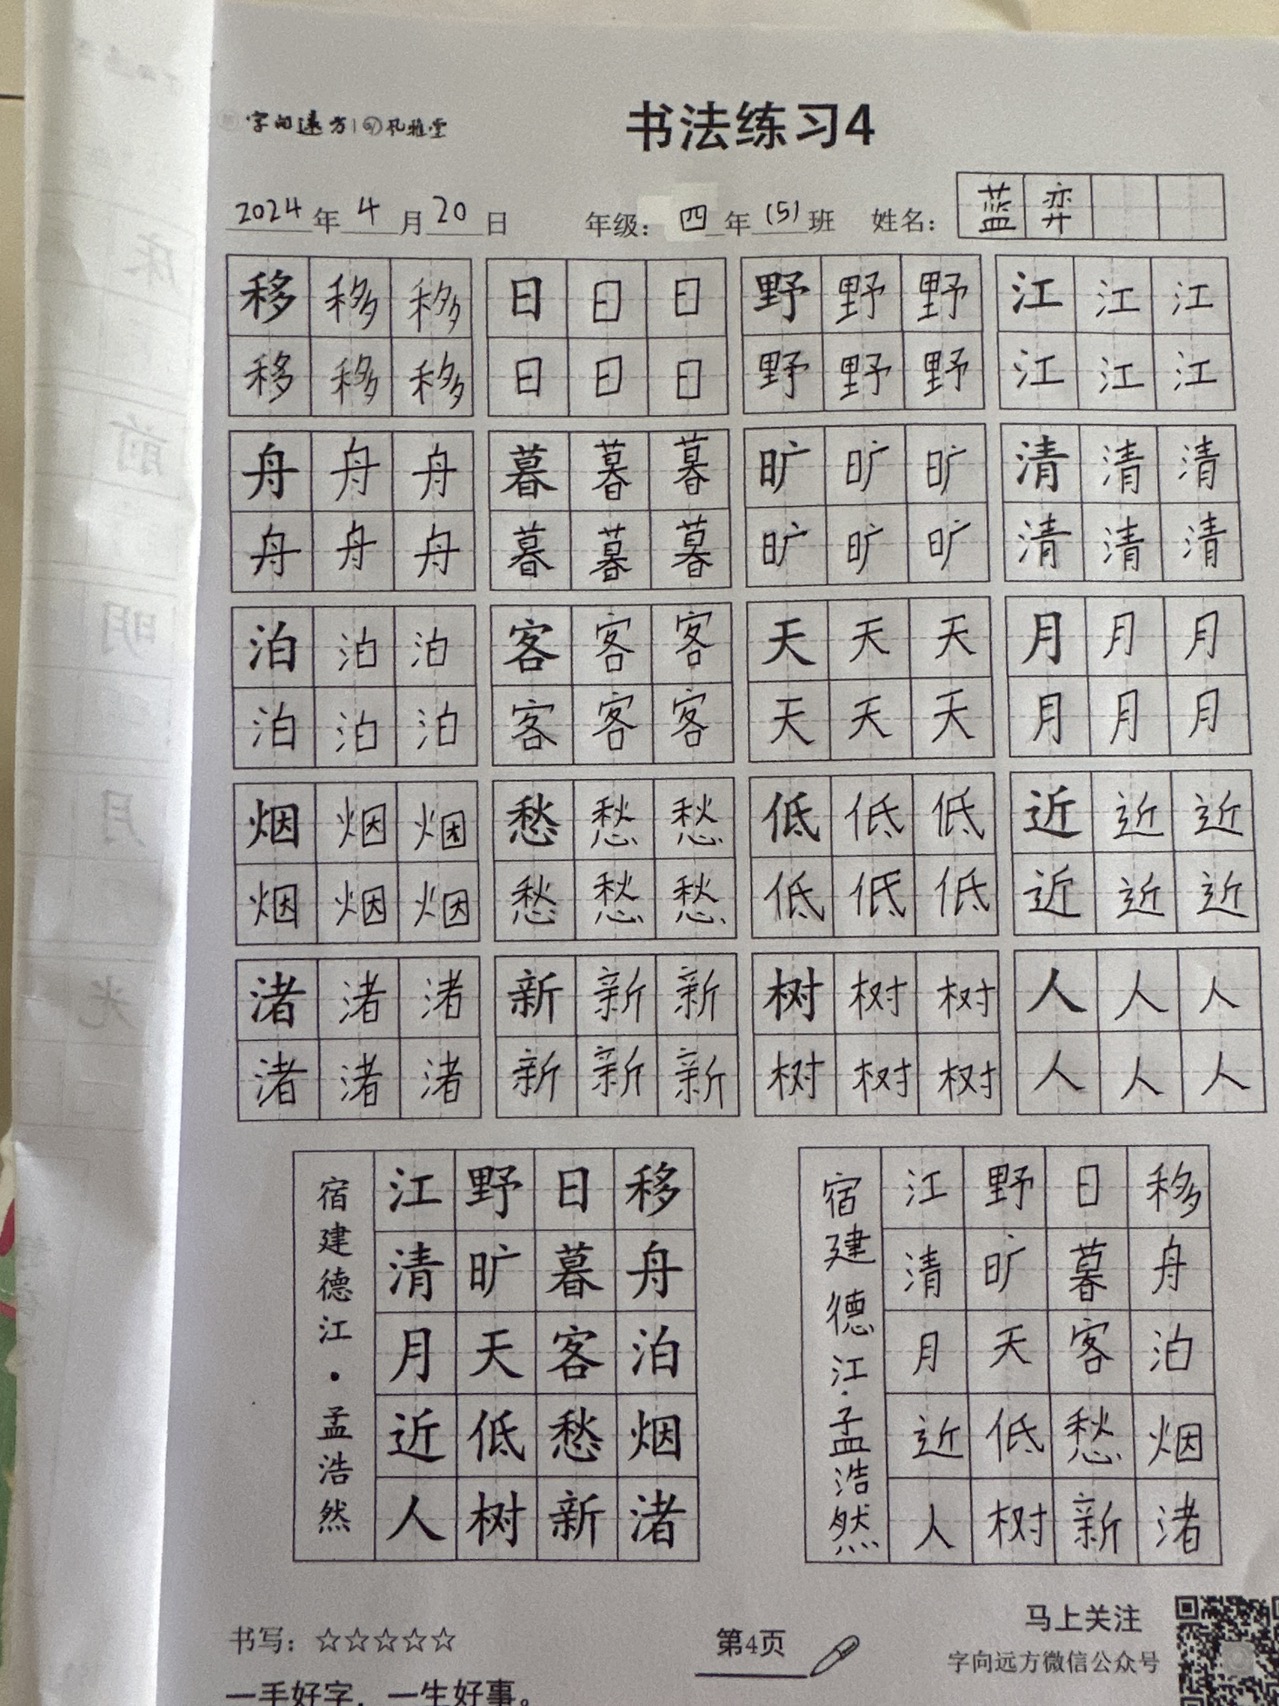 字向远方
书法练习4
2024年4月20日 年级：四年(5)班 姓名：蓝弈
移移移 日日日 野野野 江江江
移移移 日日日 野野野 江江江
舟舟舟 暮暮暮 旷旷旷 清清清
舟舟舟 暮暮暮 旷旷旷 清清清
泊泊泊 客客客 天天天 月月月
泊泊泊 客客客 天天天 月月月
烟烟烟 愁愁愁 低低低 近近近
烟烟烟 愁愁愁 低低低 近近近
渚渚渚 新新新 树树树 人人人
渚渚渚 新新新 树树树 人人人
移舟泊烟渚
日暮客愁新
野旷天低树
江清月近人
宿建德江·孟浩然
移舟泊烟渚
日暮客愁新
野旷天低树
江清月近人
宿建德江·孟浩然
书写：☆☆☆☆☆
第4页
马上关注
字向远方微信公众号
一手好字，一生好事。